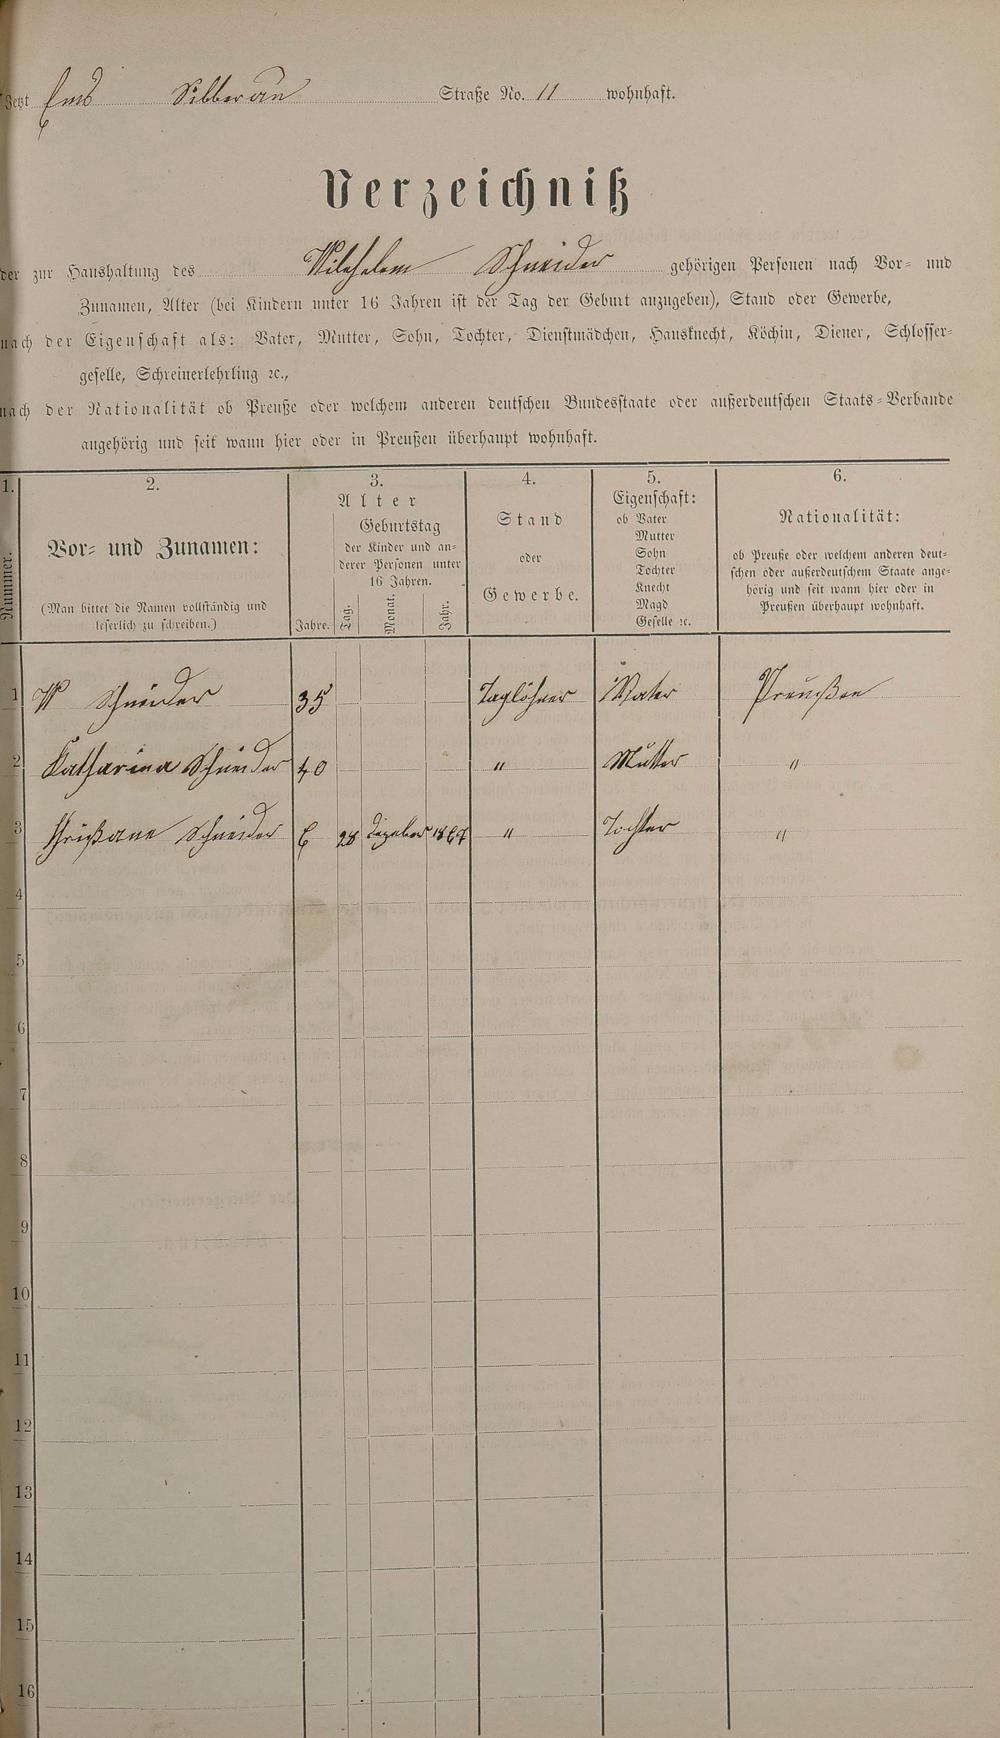 Jetzt Ems Silberau Straße No. 11 wohnhaft.
Verzeichniß
der zur Haushaltung des Wilehelem Schneider gehörigen Personen nach Vor- und
Zunamen, Alter (bei Kindern unter 16 Jahren ist der Tag der Geburt anzugeben), Stand oder Gewerbe,
nach der Eigenschaft als: Vater, Mutter, Sohn, Tochter, Dienstmädchen, Hausknecht, Köchin, Diener, Schlosser-
geselle, Schreinerlehrling ꝛc.,
nach der Nationalität ob Preuße oder welchem anderen deutschen Bundesstaate oder außerdeutschen Staats-Verbande
angehörig und seit wann hier oder in Preußen überhaupt wohnhaft.
1. 2. 3. 4. 5. 6.
Nummer.
Vor- und Zunamen:
(Man bittet die Namen vollständig und
leserlich zu schreiben.)
Alter
Jahre.
Geburtstag
der Kinder und an-
derer Personen unter
16 Jahren.
Tag. Monat. Jahr.
Stand
oder
Gewerbe.
Eigenschaft:
ob Vater
Mutter
Sohn
Tochter
Knecht
Magd
Geselle ꝛc.
Nationalität:
ob Preuße oder welchem anderen deut-
schen oder außerdeutschem Staate ange-
hörig und seit wann hier oder in
Preußen überhaupt wohnhaft.
1 W Schneider 35 Taglöhner Vater Preußen
2 Katharina Schneider 40 " Mutter "
3 Schneider 6 28 Dezember 1867 " Tochter "
4
5
6
7
8
9
10
11
12
13
14
15
16